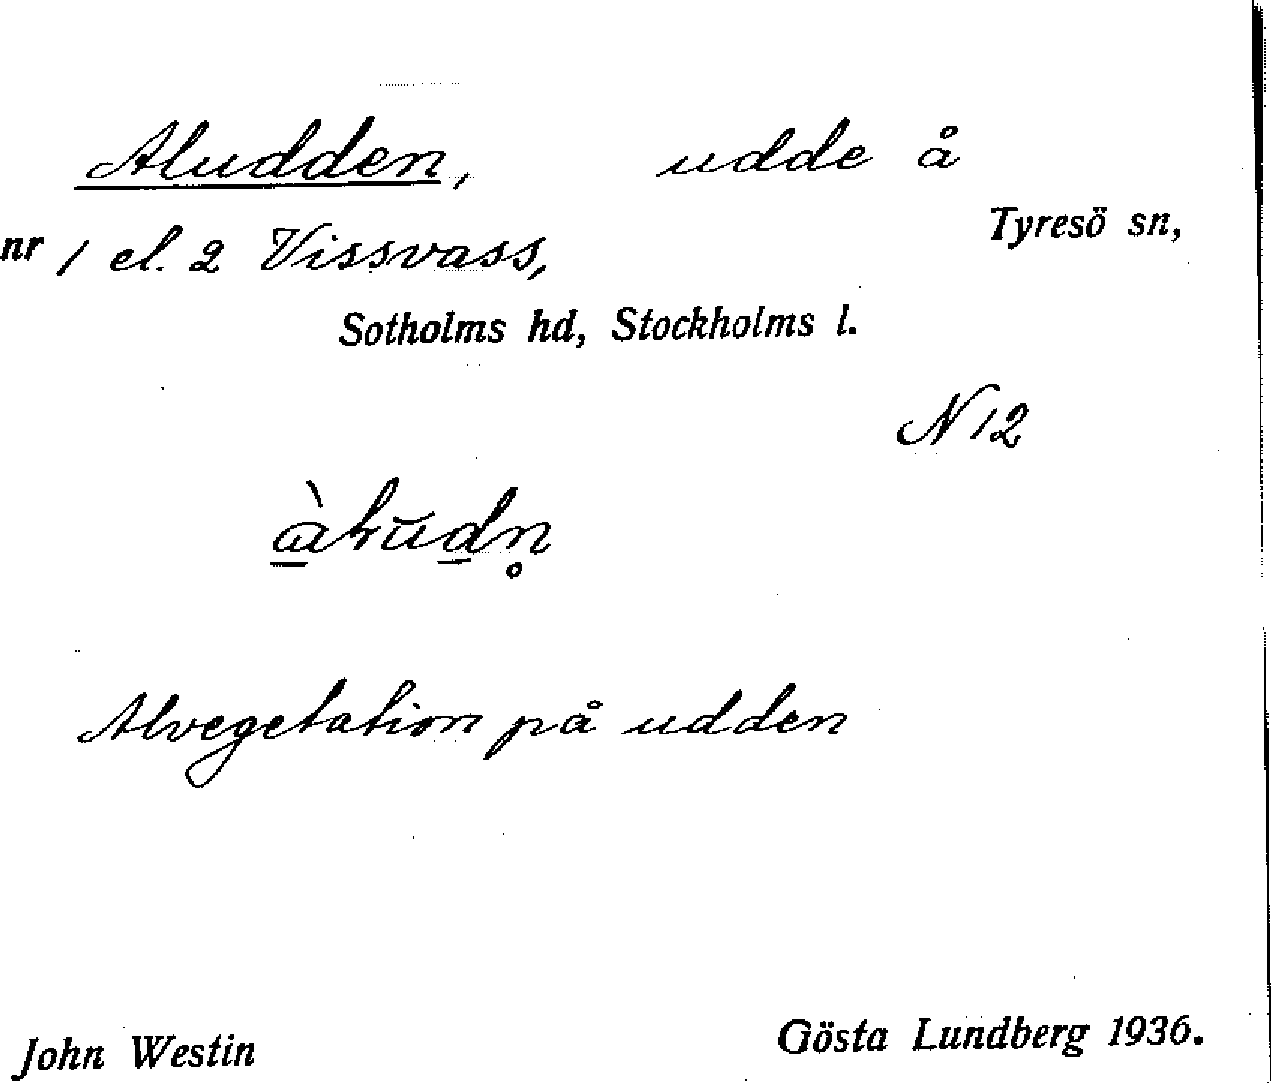 Aludden, udde å
Tyresö sn,
nr 1 el. 2 Vissvass,
Sotholms hd, Stockholms l.
N 12
Alvegetation på udden
John Westin
Gösta Lundberg 1936.